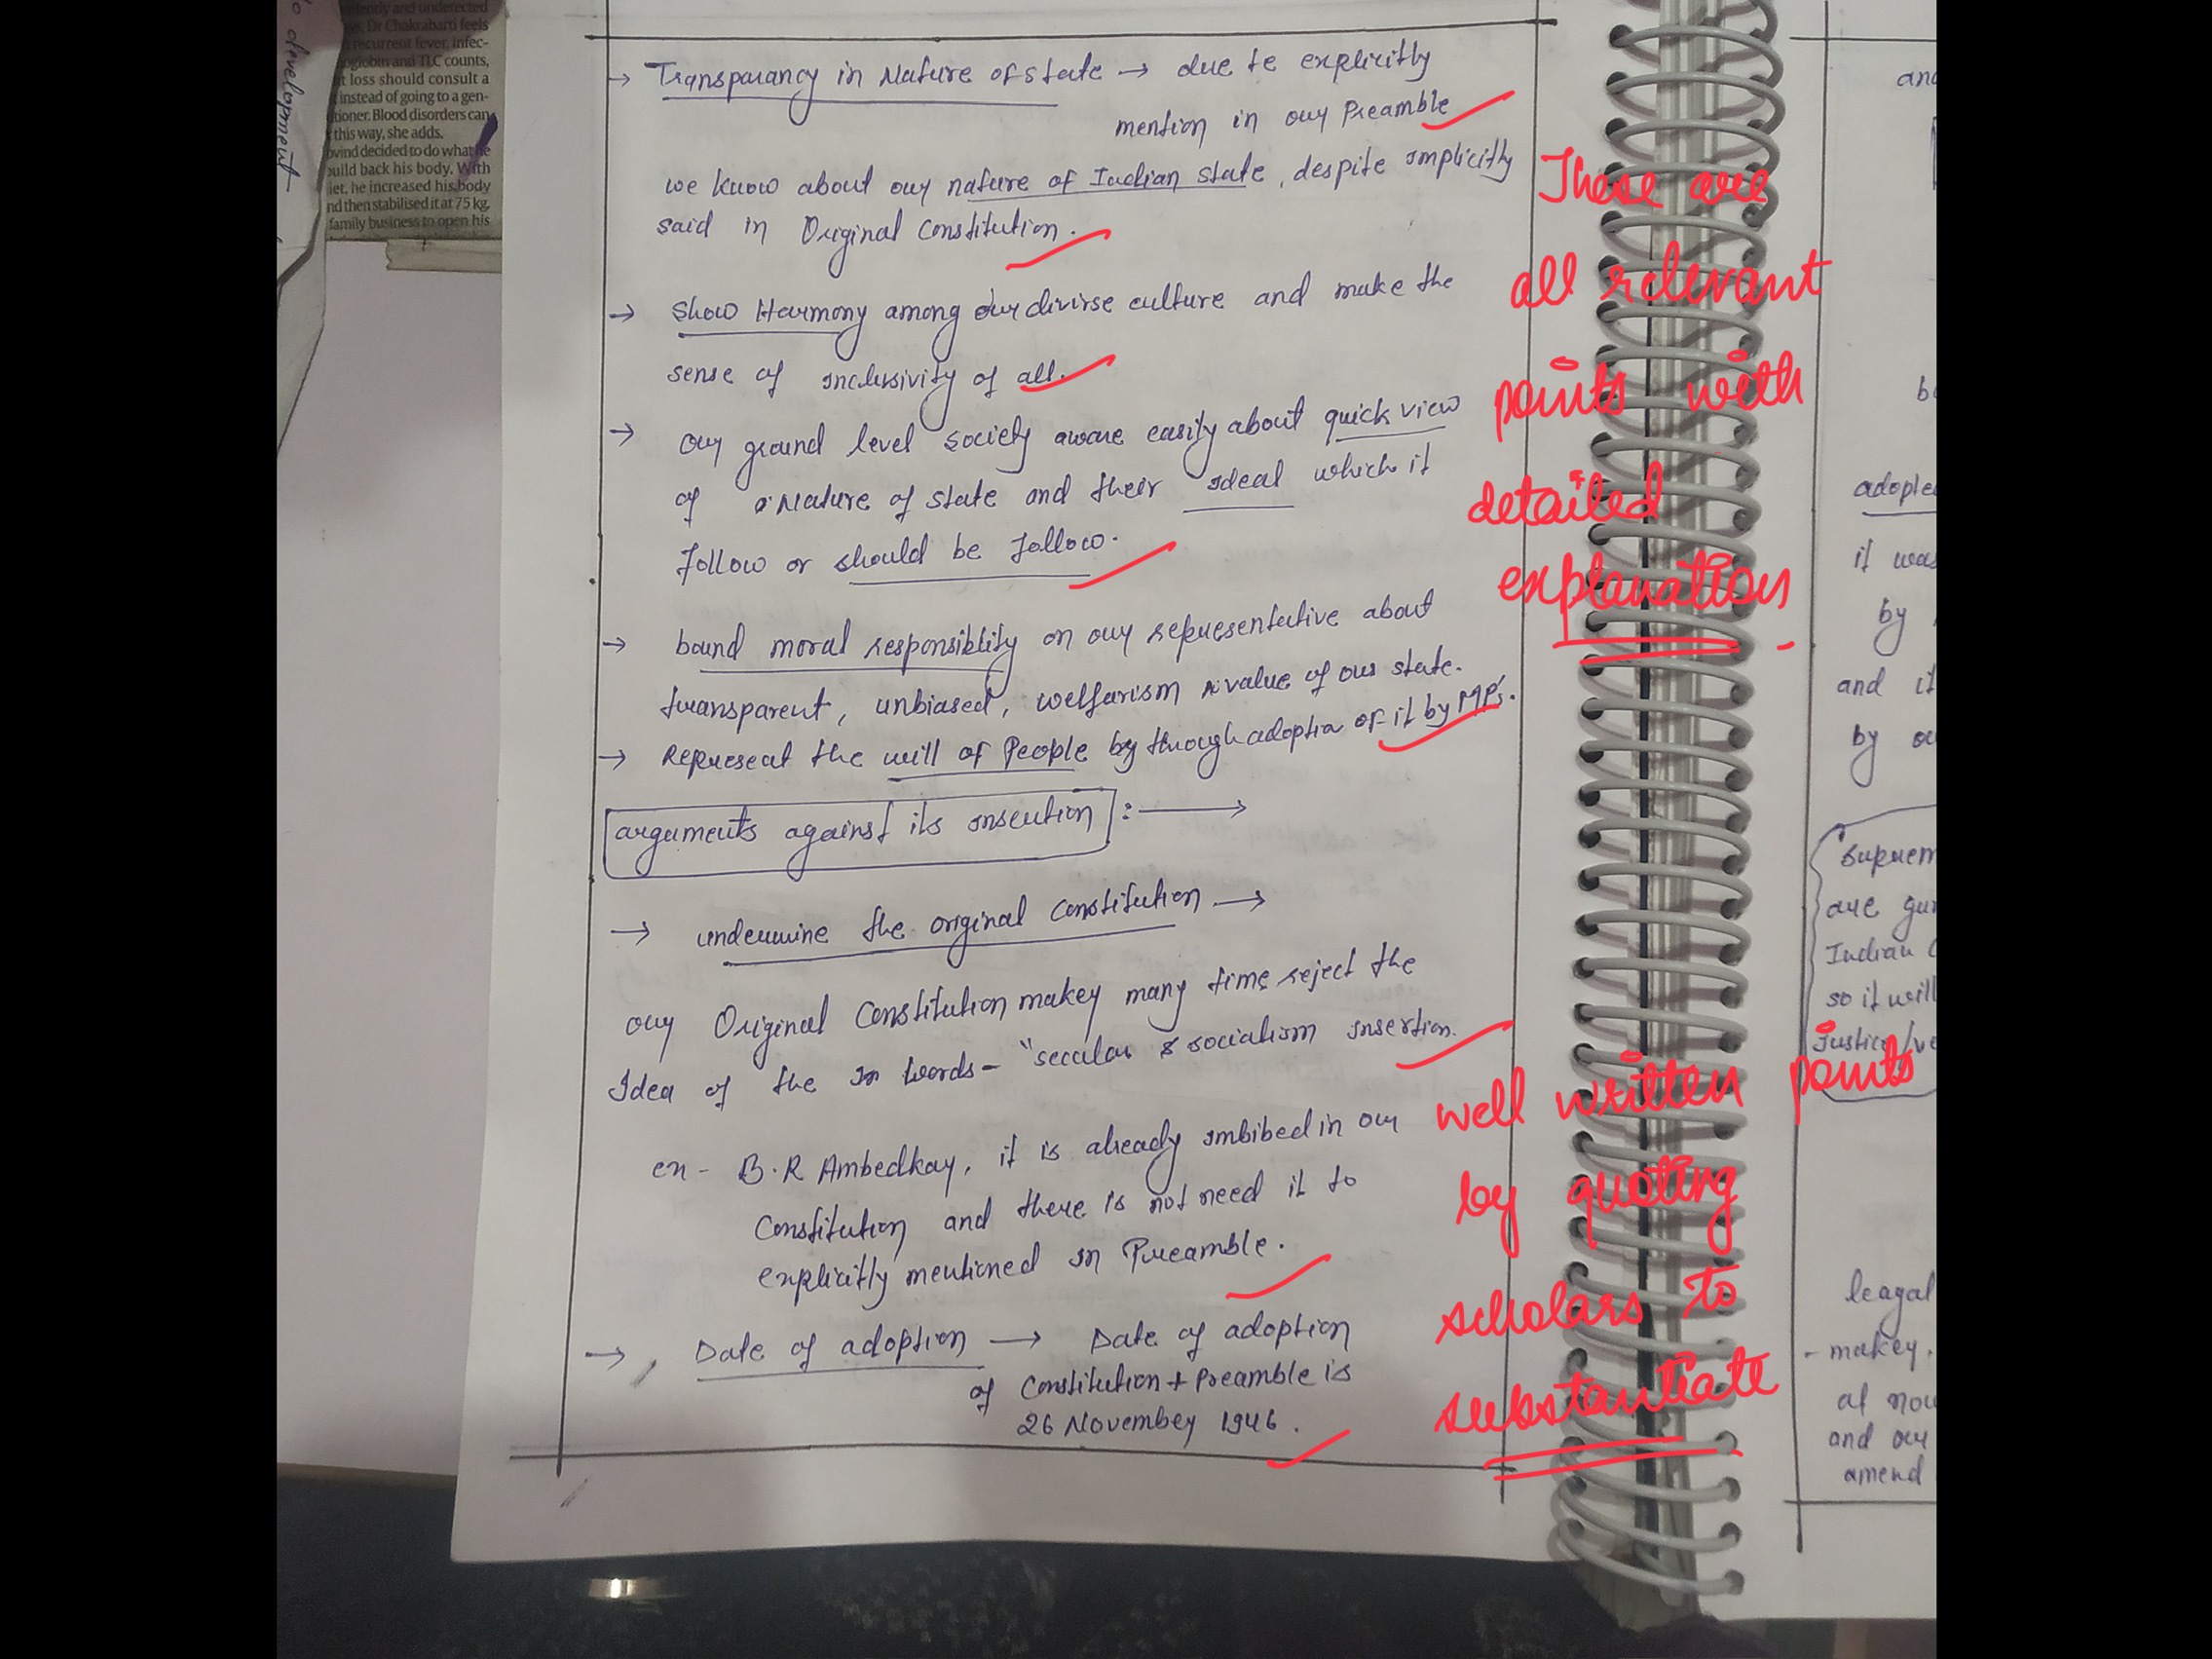 o development
lently and undetected
Dr Chakrabarti feels
recurrent fever, infec-
oglobin and TLC counts,
t loss should consult a
instead of going to a gen-
tioner. Blood disorders can
this way, she adds.
ovind decided to do what he
build back his body. With
iet, he increased his body
nd then stabilised it at 75 kg.
family business to open his
→ Transparancy in Nature of state → due to explicitly
mention in our Preamble
we know about our nature of Indian state, despite implicitly
said in Original Constitution.
→ Show Harmony among our divirse culture and make the
sense of inclusivity of all.
→ Our ground level society aware easily about quick view
of Nature of state and their ideal which it
follow or should be follow.
→ bound moral responsiblity on our representative about
transparent, unbiased, welfarism value of our state.
→ Represent the will of People by through adoption of it by MP's.
arguments against its insertion :→
→ undermine the original Constitution →
our Original Constitution maker many time reject the
Idea of the words - "secular & socialism insertion.
ex - B.R Ambedkar, it is already imbibed in our
Constitution and there is not need it to
explicitly mentioned in Preamble.
→ Date of adoption → Date of adoption
of Constitution + Preamble is
26 November 1946.
These are
all relevant
points with
detailed
explanation.
well written points
by quoting
scholars to
substantiate
and
b
adopte
it was
by
and it
by ou
Suprem
are gu
Indian C
so it will
Justice/ve
leagal
- maker.
at nou
and our
amend